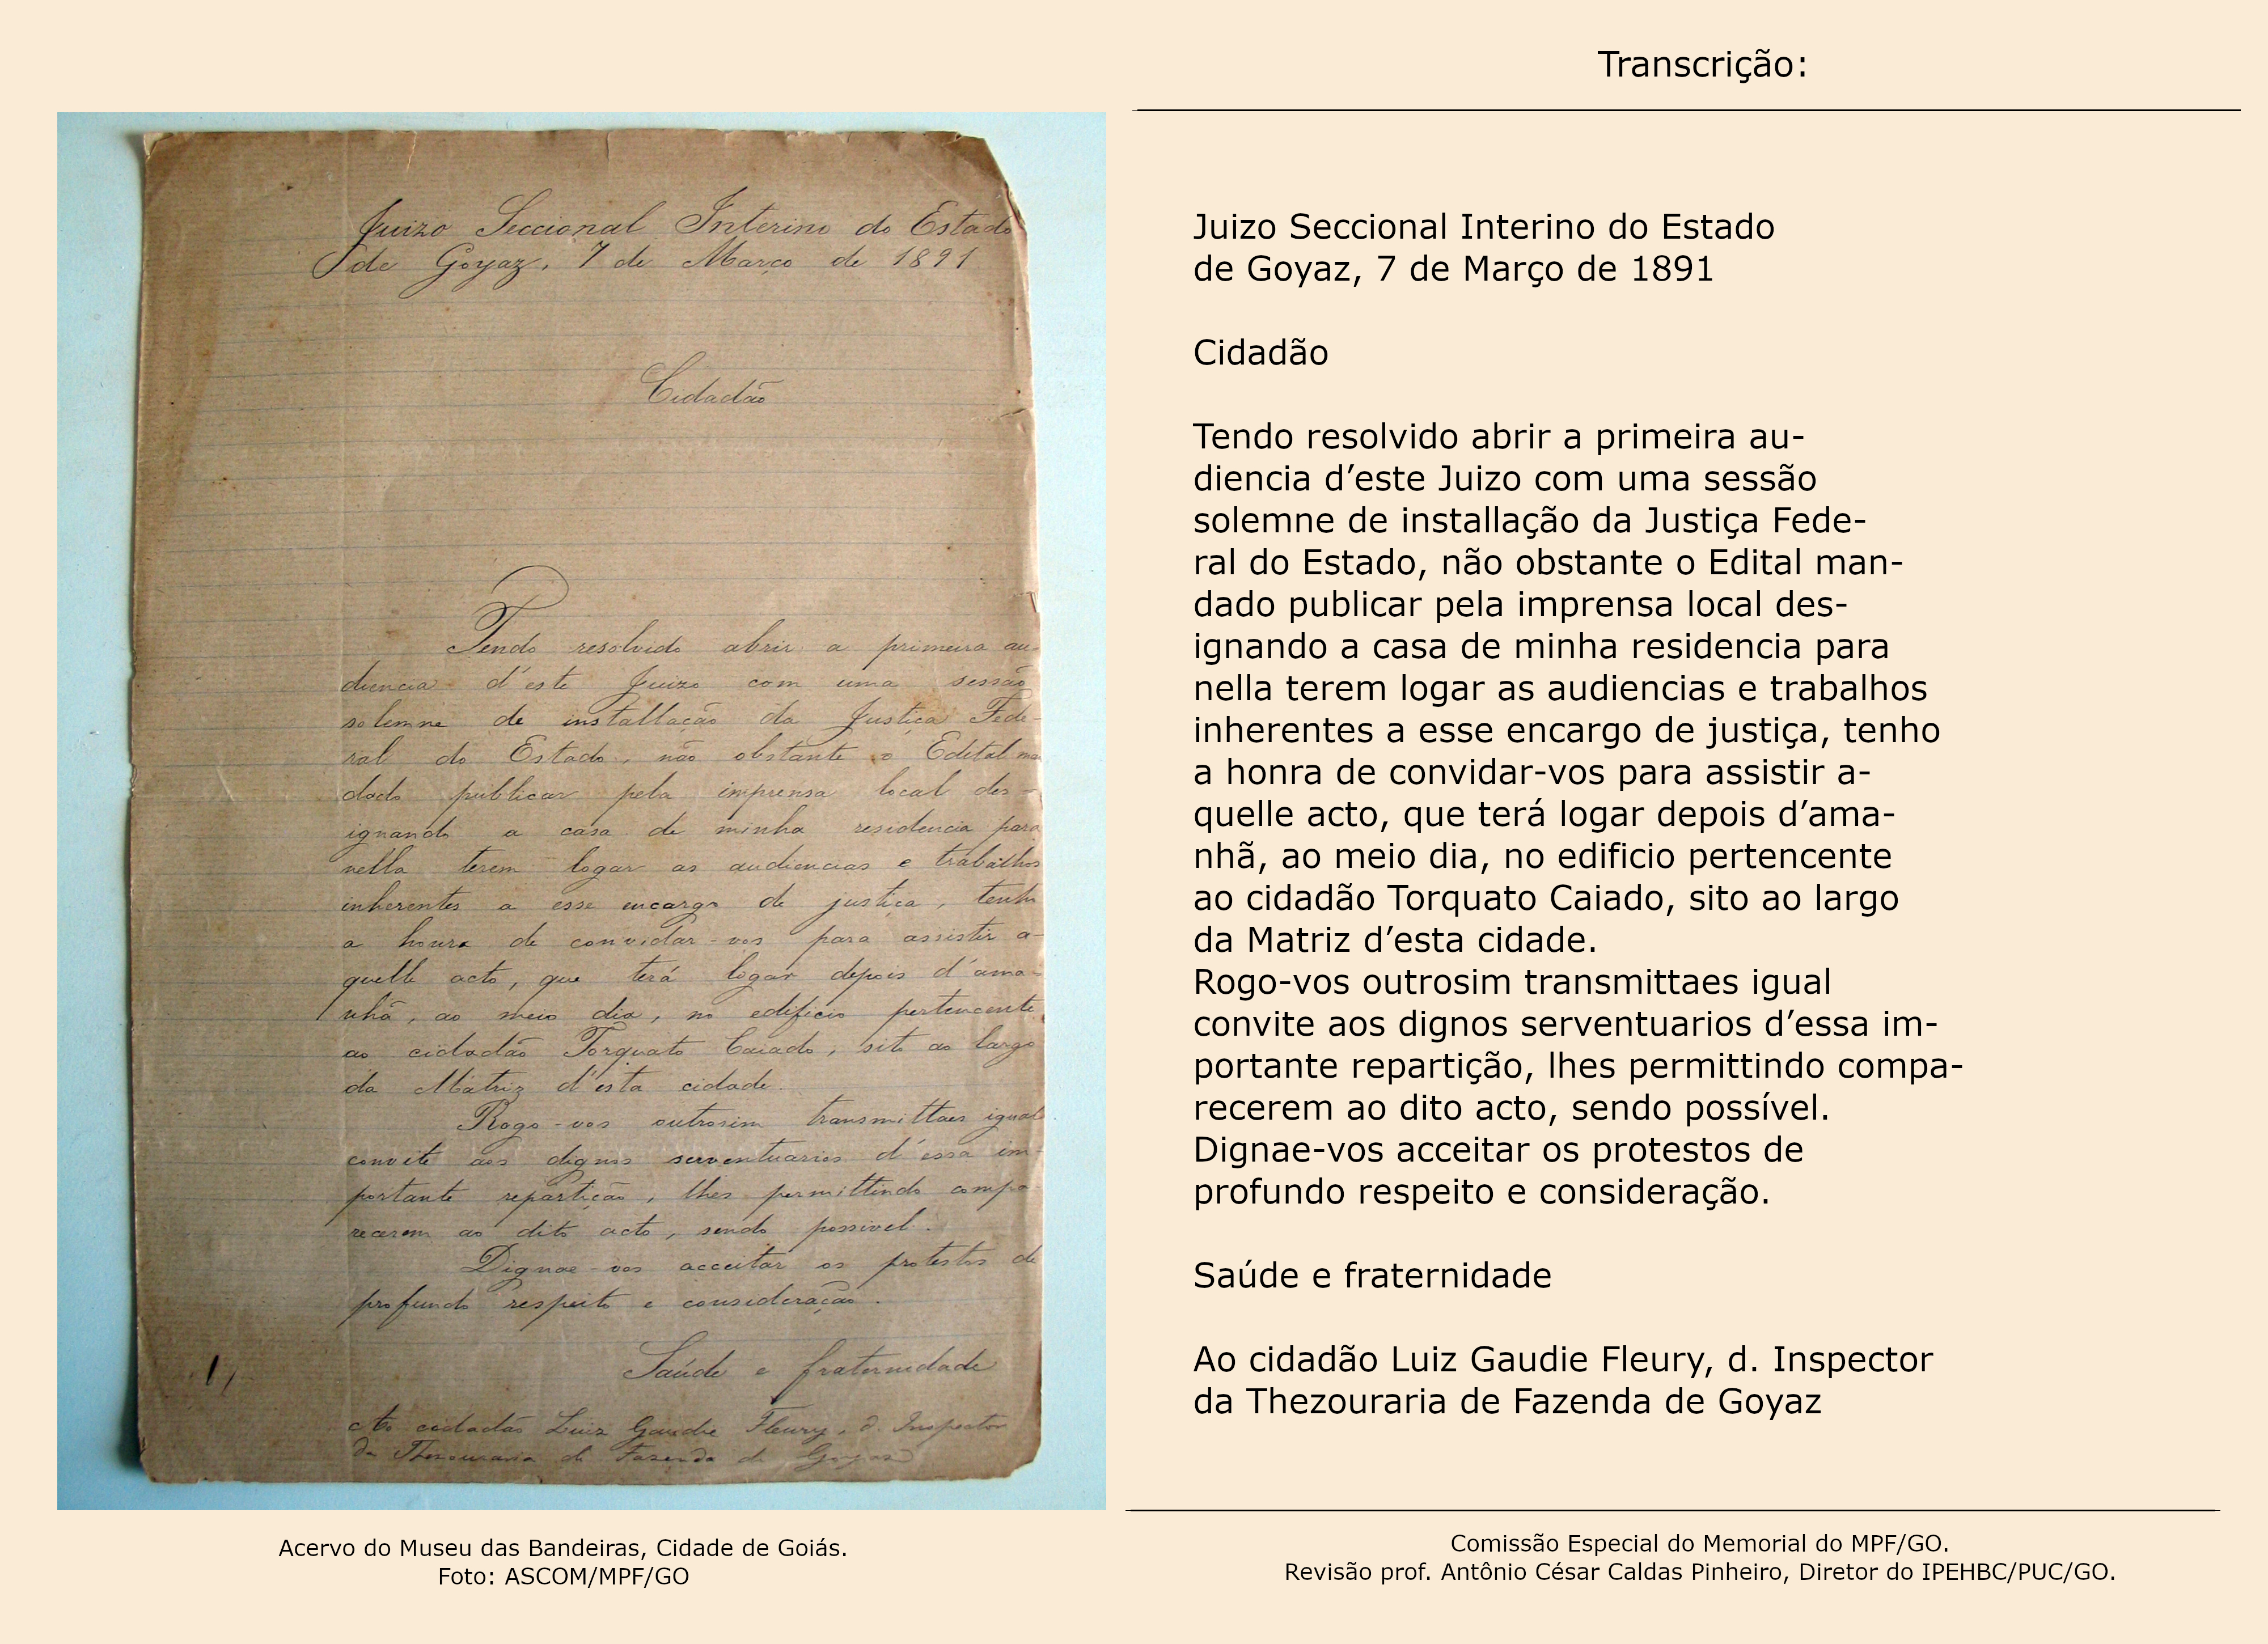 Juizo Seccional Interino do Estado
de Goyaz, 7 de Março de 1891
Cidadão
Tendo resolvido abrir a primeira au-
diencia d'este Juizo com uma sessão
solemne de installação da Justiça Fede-
ral do Estado, não obstante o Edital man
dado publicar pela imprensa local des-
ignando a casa de minha residencia para
nella terem logar as audiencias e trabalhos
inherentes a esse encargo de justiça, tenho
a honra de convidar-vos para assistir a-
quelle acto, que terá logar depois d'ama-
nhã, ao meio dia, no edificio pertencente
ao cidadão Torquato Caiado, sito ao largo
da Matriz d'esta cidade.
Rogo-vos outrosim transmittaes igual
convite aos dignos serventuarios d'essa im-
portante repartição, lhes permittindo compa-
recerem ao dito acto, sendo possivel.
Dignae-vos acceitar os protestos de
profundo respeito e consideração.
Saúde e fraternidade
Ao cidadão Luiz Gaudie Fleury, d. Inspector
da Thezouraria de Fazenda de Goyaz
Acervo do Museu das Bandeiras, Cidade de Goiás.
Foto: ASCOM/MPF/GO
Transcrição:
Juizo Seccional Interino do Estado
de Goyaz, 7 de Março de 1891
Cidadão
Tendo resolvido abrir a primeira au-
diencia d’este Juizo com uma sessão
solemne de installação da Justiça Fede-
ral do Estado, não obstante o Edital man-
dado publicar pela imprensa local des-
ignando a casa de minha residencia para
nella terem logar as audiencias e trabalhos
inherentes a esse encargo de justiça, tenho
a honra de convidar-vos para assistir a-
quelle acto, que terá logar depois d’ama-
nhã, ao meio dia, no edificio pertencente
ao cidadão Torquato Caiado, sito ao largo
da Matriz d’esta cidade.
Rogo-vos outrosim transmittaes igual
convite aos dignos serventuarios d’essa im-
portante repartição, lhes permittindo compa-
recerem ao dito acto, sendo possível.
Dignae-vos acceitar os protestos de
profundo respeito e consideração.
Saúde e fraternidade
Ao cidadão Luiz Gaudie Fleury, d. Inspector
da Thezouraria de Fazenda de Goyaz
Comissão Especial do Memorial do MPF/GO.
Revisão prof. Antônio César Caldas Pinheiro, Diretor do IPEHBC/PUC/GO.